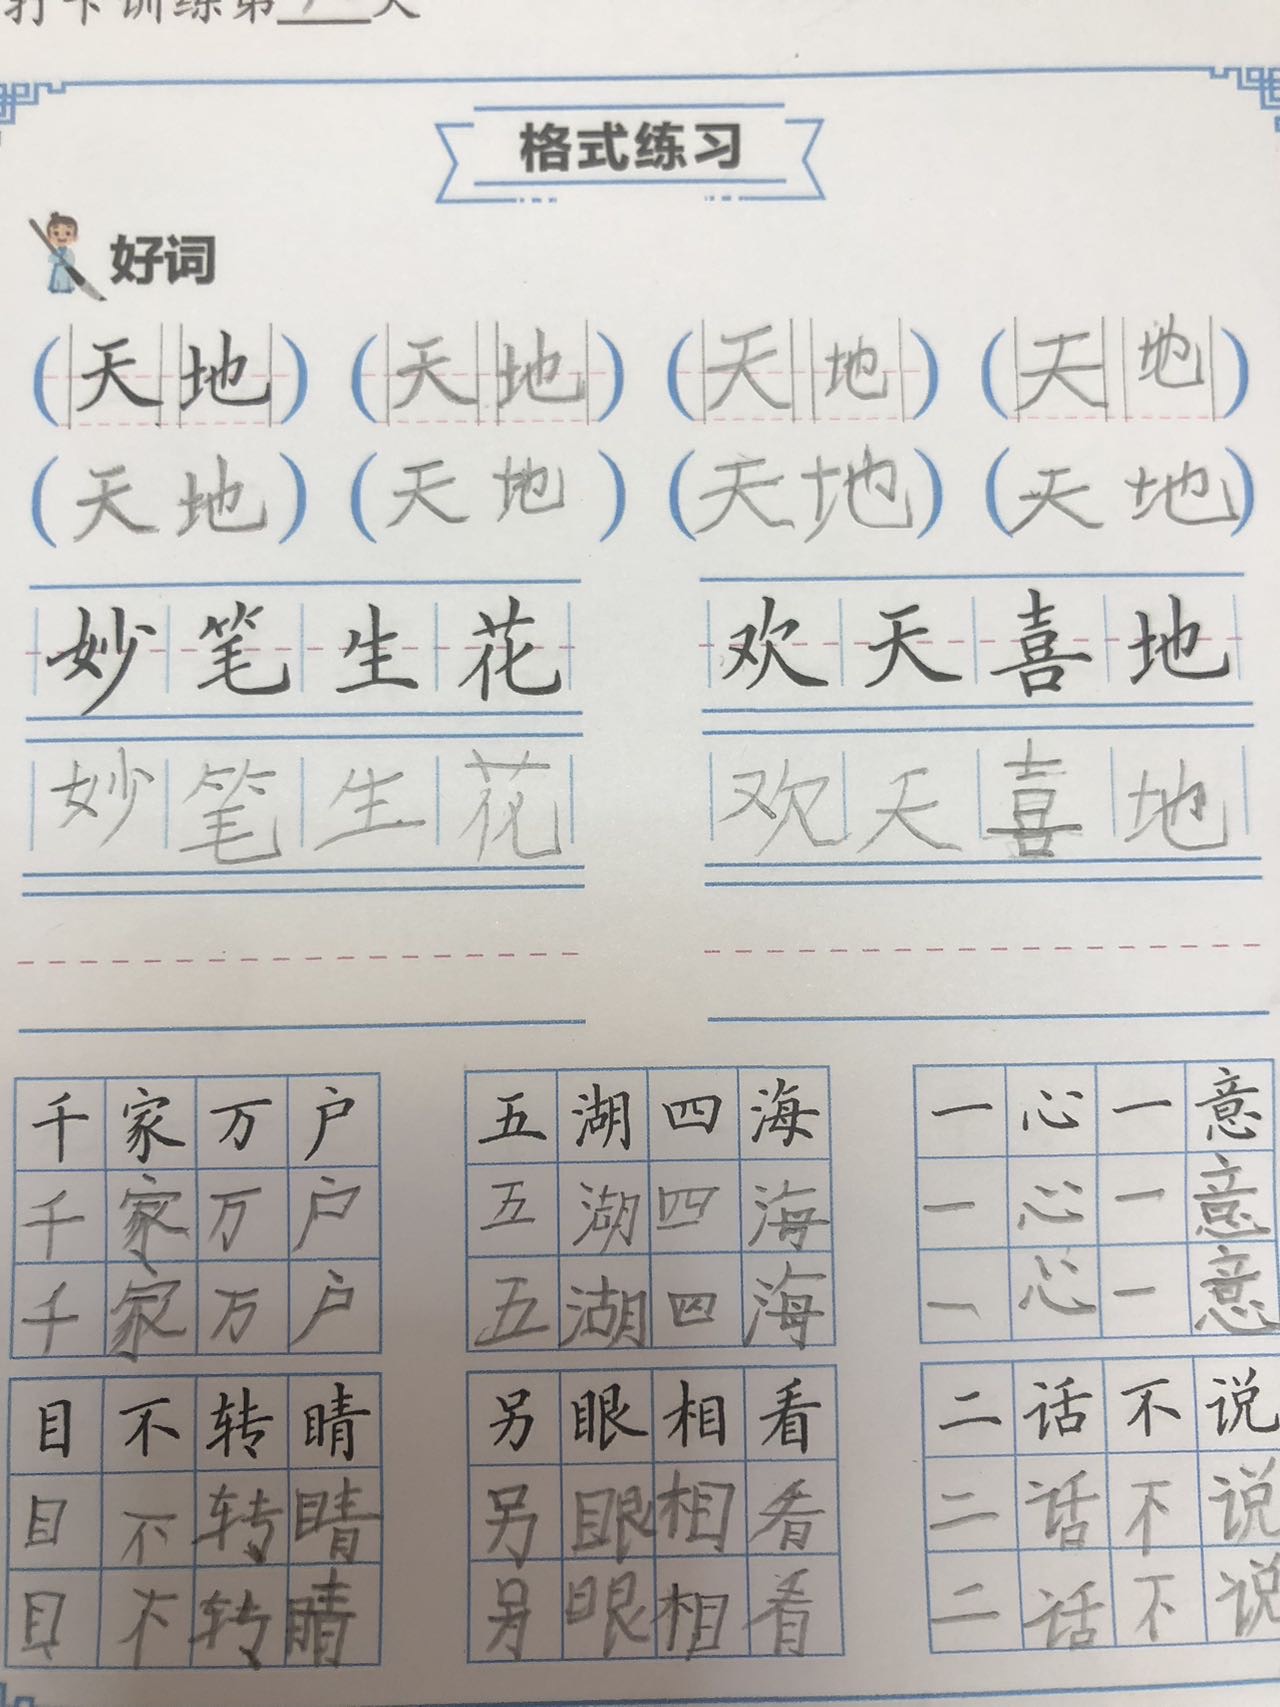 打卡训练第 天
格式练习
好词
(天地) (天地) (天地) (天地)
(天地) (天地) (天地) (天地)
妙笔生花 欢天喜地
妙笔生花 欢天喜地
千家万户 五湖四海 一心一意
千家万户 五湖四海 一心一意
千家万户 五湖四海 一心一意
目不转睛 另眼相看 二话不说
目不转睛 另眼相看 二话不说
目不转睛 另眼相看 二话不说